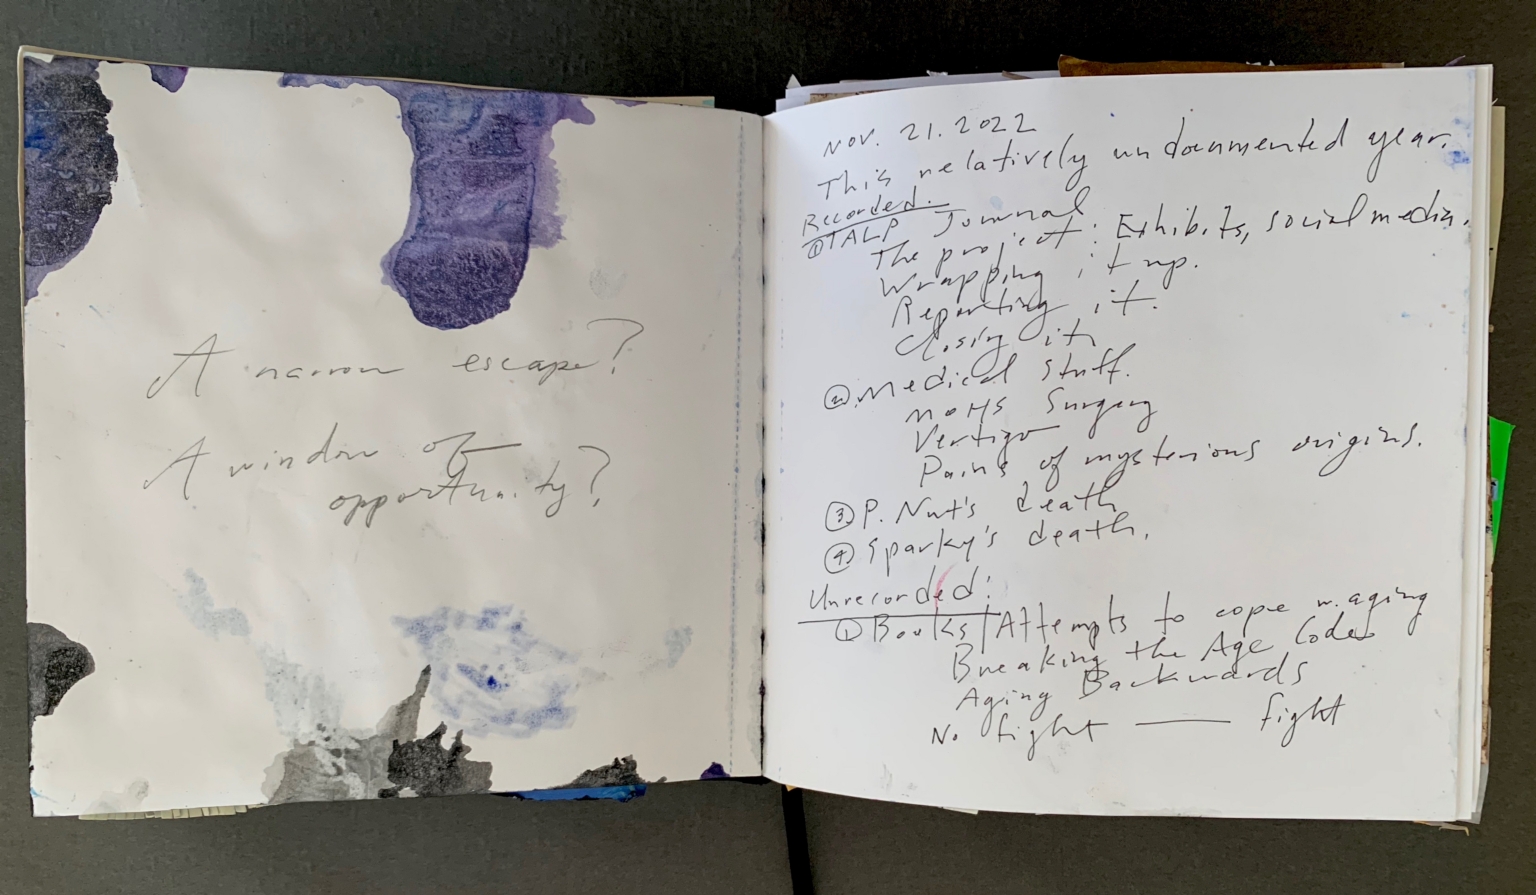 A narrow escape?
A window of
opportunity?
Nov. 21. 2022
This relatively undocumented year.
Recorded.
① TALP Journal
The project: Exhibits, social media.
Wrapping it up.
Reporting it.
Closing it.
② Medical stuff.
MOHS Surgery
Vertigo
Pains of mysterious origins.
③ P. Nut's death
④ Sparky's death.
Unrecorded:
① Books/Attempts to cope w. aging
Breaking the Age Code
Aging Backwards
No fight —— fight